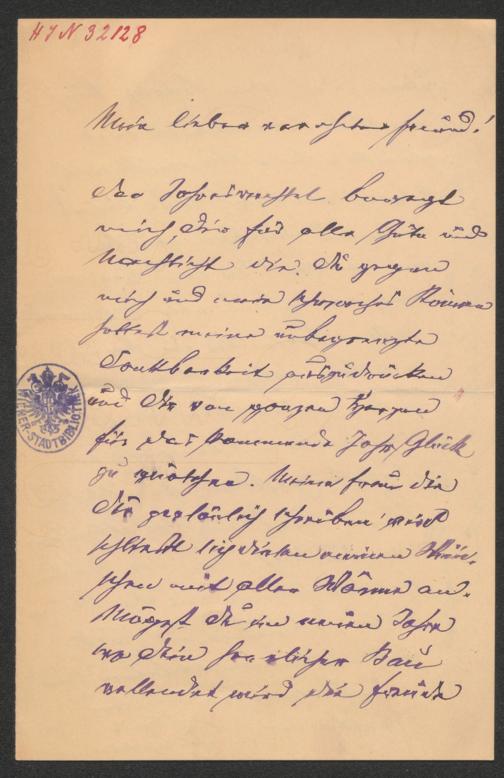 HIN 32128
Mein lieber verehrter Freund!
Der Jahreswechsel bewegt
mich, Dir für alle Güte und
Nachsicht die Du gegen
mich und mein schwaches Können
hattest meine unbegrenzte
Dankbarkeit auszudrücken
und Dir von ganzem Herzen
für das kommende Jahr Glück
zu wünschen. Meine Frau die
Dir persönlich schreiben wird
schließt sich diesen meinen Wün-
schen mit aller Wärme an.
Mögest Du im neuen Jahre
wo Dein herrlicher Bau
vollendet wird die Freude
WIENER-STADTBIBLIOTHEK